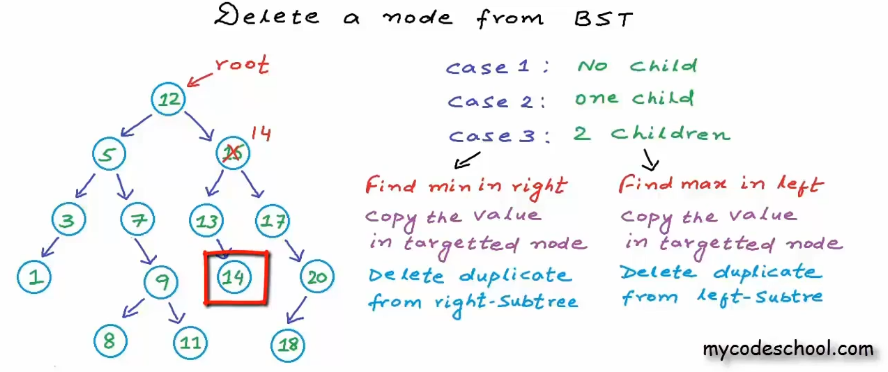 Delete a node from BST
root
12
14
5
15
3
7
13
17
1
9
14
20
8
11
18
case 1: No child
case 2: one child
case 3: 2 children
Find min in right
Copy the value
in targetted node
Delete duplicate
from right-Subtree
Find max in left
Copy the value
in targetted node
Delete duplicate
from left-Subtre
mycodeschool.com